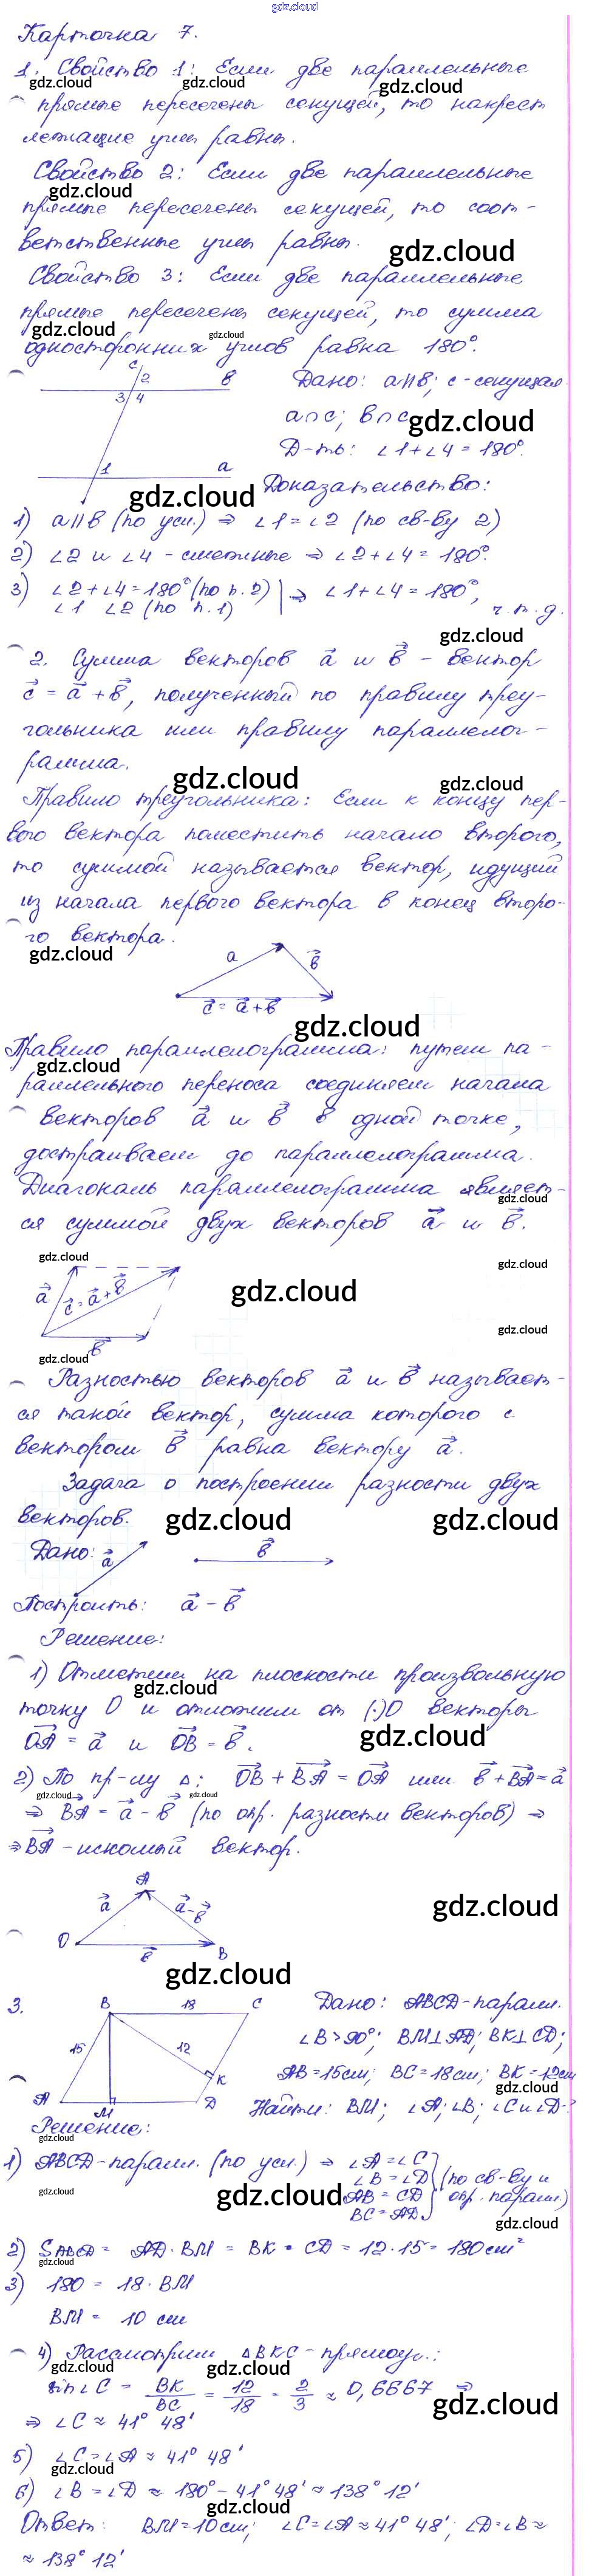 gdz.cloud
Карточка 7.
1. Свойство 1: Если две параллельные
прямые пересечены секущей, то накрест
лежащие углы равны.
Свойство 2: Если две параллельные
прямые пересечены секущей, то соот-
ветственные углы равны.
Свойство 3: Если две параллельные
прямые пересечены секущей, то сумма
односторонних углов равна 180°.
c 2 b 3 4 1 a
Дано: a∥b; c - секущая
a∩c; b∩c
Д-ть: ∠1+∠4=180°.
Доказательство:
1) a∥b (по усл.) ⇒ ∠1=∠2 (по св-ву 2)
2) ∠2 и ∠4 - смежные ⇒ ∠2+∠4=180°.
3) ∠2+∠4=180° (по п. 2) | ⇒ ∠1+∠4=180°,
∠1 ∠2 (по п. 1)
ч.т.д.
2. Сумма векторов a⃗ и b⃗ - вектор
c⃗ = a⃗ + b⃗, полученный по правилу треу-
гольника или правилу параллелог-
рамма.
Правило треугольника: Если к концу пер-
вого вектора поместить начало второго,
то суммой называется вектор, идущий
из начала первого вектора в конец второ-
го вектора.
a b⃗
c⃗ = a⃗ + b⃗
Правило параллелограмма: путем па-
раллельного переноса соединяем начала
векторов a⃗ и b⃗ в одной точке,
достраиваем до параллелограмма.
Диагональ параллелограмма являет-
ся суммой двух векторов a⃗ и b⃗.
a⃗ c⃗ = a⃗ + b⃗
b⃗
Разностью векторов a⃗ и b⃗ называет-
ся такой вектор, сумма которого с
вектором b⃗ равна вектору a⃗.
Задача о построении разности двух
векторов.
Дано: a⃗ b⃗
Построить: a⃗ - b⃗
Решение:
1) Отметим на плоскости произвольную
точку O и отложим от (·)O векторы
OA⃗ = a⃗ и OB⃗ = b⃗.
2) По пр-лу Δ: OB⃗ + BA⃗ = OA⃗ или b⃗ + BA⃗ = a⃗
⇒ BA⃗ = a⃗ - b⃗ (по опр. разности векторов) ⇒
⇒ BA⃗ - искомый вектор.
A
a⃗ a⃗-b⃗
O b⃗ B
3. B 18 C
15 12 K
A M D
Дано: ABCD - паралл.
∠B > 90°; BM⊥AD; BK⊥CD;
AB=15см; BC=18см; BK=12см
Найти: BM; ∠A; ∠B; ∠C и ∠D-?
Решение:
1) ABCD - паралл. (по усл.) ⇒ ∠A=∠C
∠B=∠D (по св-ву и
AB=CD опр. паралл.)
BC=AD
2) SABCD = AD·BM = BK·CD = 12·15 = 180 см²
3) 180 = 18·BM
BM = 10 см
4) Рассмотрим ΔBKC - прямоуг.:
sin∠C = BK/BC = 12/18 = 2/3 ≈ 0,6667 ⇒
⇒ ∠C ≈ 41° 48'
5) ∠C=∠A ≈ 41° 48'
6) ∠B=∠D ≈ 180° - 41° 48' ≈ 138° 12'
Ответ: BM=10см; ∠C=∠A≈41° 48'; ∠D=∠B≈
≈ 138° 12'